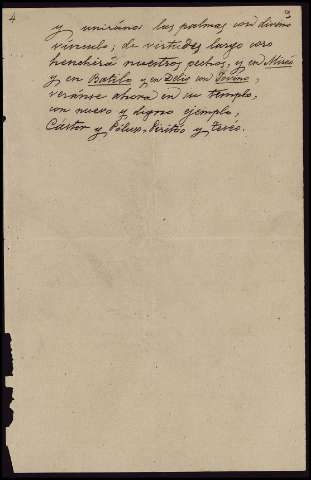 4
3
y unirános las palmas con divino
vínculo; de virtudes largo coro
henchirá nuestros pechos, y en Mireo
y en Batilo, y en Delio con Jovino,
veránse ahora en su templo,
con nuevo y digno ejemplo,
Cástor y Pólux, Piritóo y Teséo.